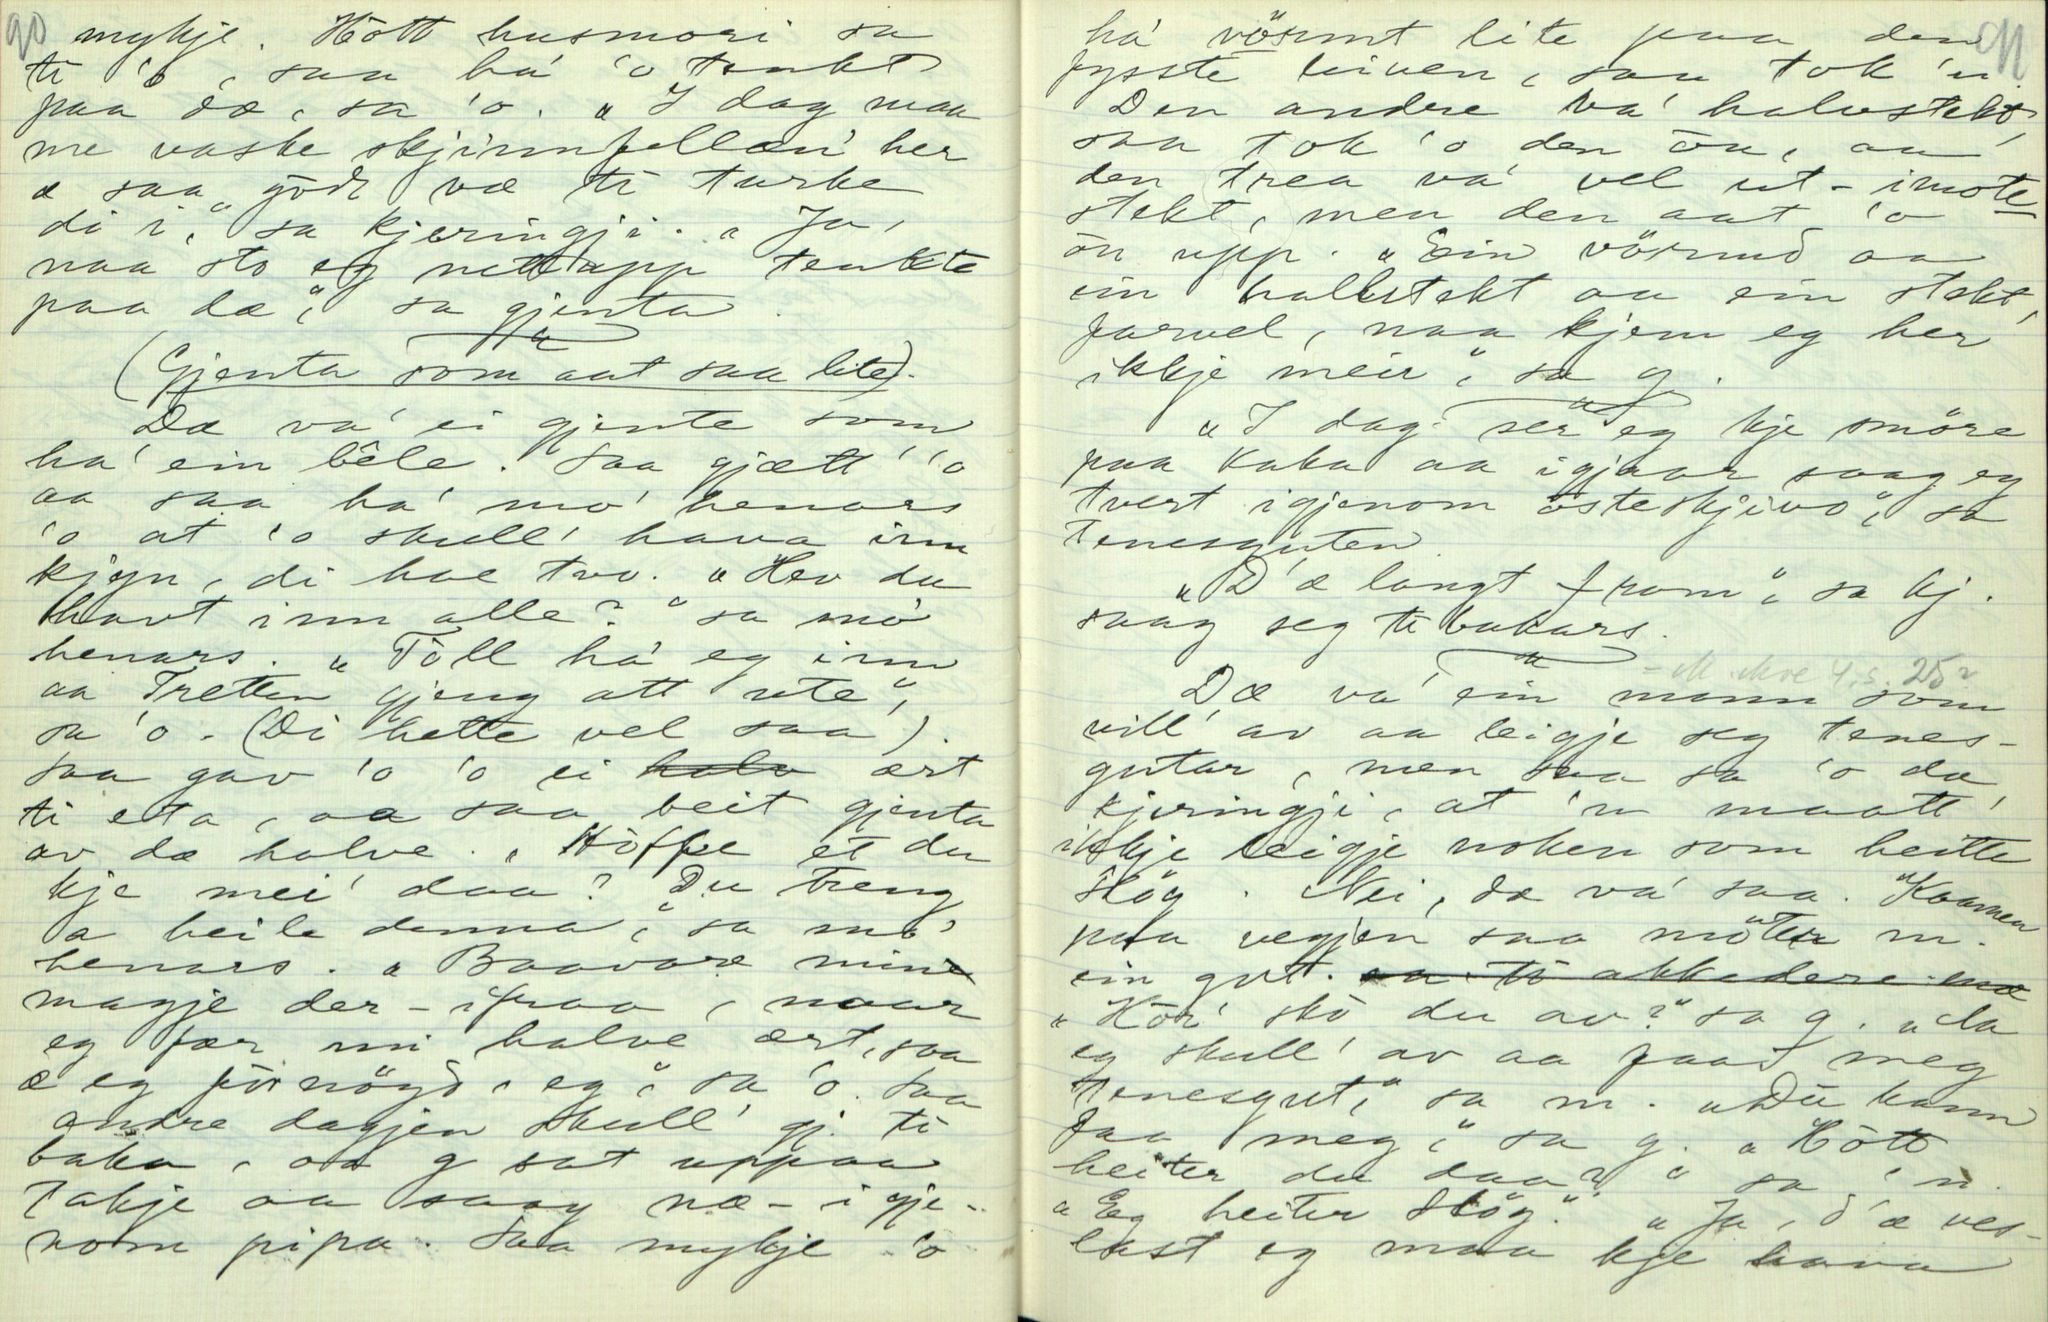 90
mykje. Hott husmori sa
ti 'o, saa ha' 'o tenkt
paa dæ, sa 'o. „I dag maa
me vaske skjinnfellan' her
æ saa godt væ ti turke
di i," sa kjeringji. „Ja,
naa sto eg nettupp tenkte
paa dæ," sa gjenta.
(Gjenta som aat saa lite).
Dæ va' ei gjente som
ha' ein bêle. Saa gjætt' 'o
aa saa ha' mo' henars
'o at 'o skull' hava inn
kjyn, di hae tvo. „Hev du
havt inn alle?" sa mo'
henars. „Tòll ha' eg inn
aa Tretten gjeng att ute",
sa 'o. (Di hette vel saa).
Saa gav 'o 'o ei halv ært
ti eta, aa saa beit gjenta
av dæ halve. „Höffe et du
kje mei' daa? Du treng
a heile denna," sa mo'
henars. „Baavare mine
magje der-ifraa, naar
eg fær mi halve ært, saa
æ eg förnögd, eg," sa 'o. Saa
andre dagjen skull' gj. ti
baka, aa g sat uppaa
takje aa saag næ-i gje-
nom pipa. Saa mykje 'o
91
ha' vörmt lite paa den
fysste leiven, saa tok 'n
Den andre va' halvstekt,
saa tok 'o den òn, aa
den trea va' vel ut-imote
stekt, men den aat 'o
òn upp. „Ein vörmd aa
ein hallstekt aa ein stekt,
farvel, naa kjem eg her
ikkje meir", sa g.
„I dag ser eg kje smöre
paa kaka aa igjaar saag eg
tvert igjenom österskjivo", sa
Tenesguten.
„D'æ langt fram", sa kj.
saag seg ti bakars.
Dæ va' ein mann som
vill' av aa leigje seg tenes-
gutar, men saa sa 'o dæ
kjeringji, at 'n maatt'
ikkje leigje noken som heitte
Slög. Nei, dæ va' saa. Kaamen
paa vegjen saa möter m.
ein gut. sa ti akkedere mæ
„Hòr' skò du av?" sa g. „Ja
eg skull' av aa faad meg
tenesgut," sa m. „Du kann
faa meg," sa g. „Hòtt
heiter du daa?" sa 'n.
„Eg heiter Slög." „Ja, d'æ ves-
last eg maa kje hava